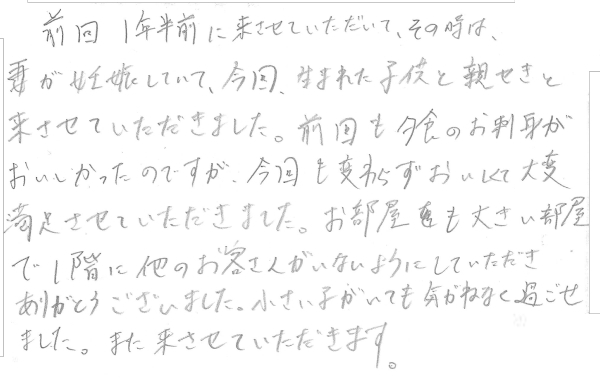 前回 1年半前に来させていただいて、その時は、
妻が妊娠していて、今回、生まれた子供と親せきと
来させていただきました。前回も夕食のお刺身が
おいしかったのですが、今回も変わらずおいしくて大変
満足させていただきました。お部屋も大きい部屋
で1階に他のお客さんがいないようにしていただき
ありがとうございました。小さい子がいても気がねなく過ごせ
ました。また来させていただきます。